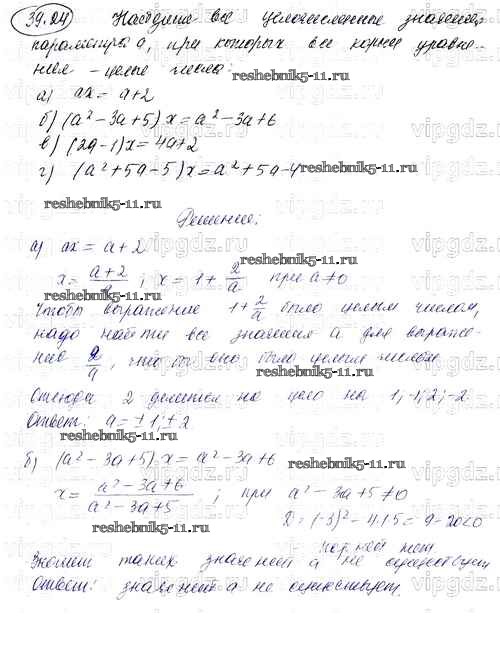 39.24 Найдите все целочисленные значения
параметра а, при которых все корни уравне-
ния – целые числа:
reshebnik5-11.ru
а) ax = a+2
б) (a² – 3a + 5) x = a² – 3a + 6
в) (2a – 1)x = 4a + 2
г) (a² + 5a – 5) x = a² + 5a – 4
reshebnik5-11.ru
reshebnik5-11.ru
Решение:
а) ax = a + 2
reshebnik5-11.ru
x = (a+2)/a ; x = 1 + 2/a при a ≠ 0
reshebnik5-11.ru
Чтобы выражение 1 + 2/a было целым числом,
надо найти все значения a для выраже-
reshebnik5-11.ru
reshebnik5-11.ru
ния 2/a, чтобы оно было целым числом
Отсюда 2 делится на цело на 1; -1; 2; -2
Ответ: a = ±1; ±2
reshebnik5-11.ru
б) (a² – 3a + 5) x = a² – 3a + 6
reshebnik5-11.ru
x = (a² – 3a + 6)/(a² – 3a + 5) ; при a² – 3a + 5 ≠ 0
reshebnik5-11.ru
D = (-3)² – 4·1·5 = 9 – 20 < 0
корней нет
Значит таких значений a не существует
reshebnik5-11.ru
Ответ: значений a не существует.